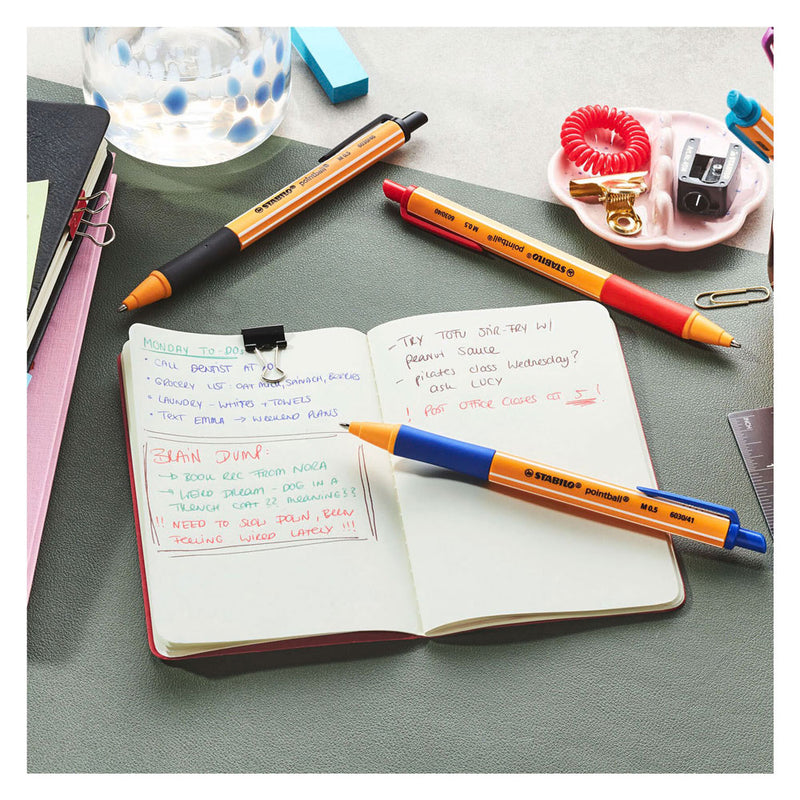 STABILO pointball® M 0.5 6030/46
STABILO pointball® M 0.5 6030/40
MONDAY TO-DOs
• CALL DENTIST AT 10
• GROCERY LIST: OAT MILK, SPINACH, BERRIES
• LAUNDRY - WHITES + TOWELS
• TEXT EMMA → WEEKEND PLANS
BRAIN DUMP:
→ BOOK REC FROM NORA
→ WEIRD DREAM - DOG IN A
TRENCH COAT ?? MEANING??
!! NEED TO SLOW DOWN, BEEN
FEELING WIRED LATELY !!!
- TRY TOFU STIR-FRY W/
peanut sauce
- pilates class Wednesday?
ask LUCY
! POST OFFICE CLOSES AT 5 !
STABILO pointball® M 0.5 6030/41